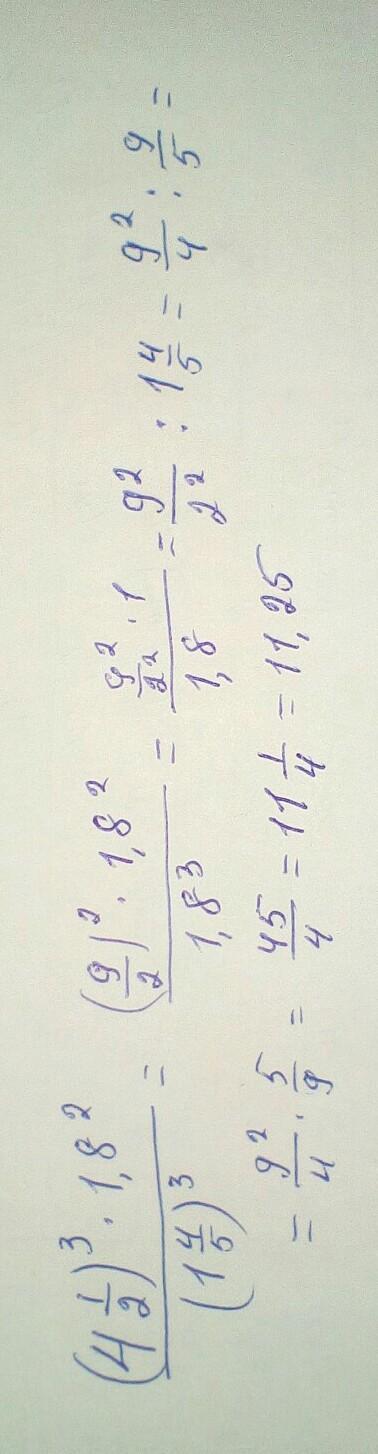 (4 1/2)³ · 1,8² / (1 4/5)³ = (9/2)² · 1,8² / 1,8³ = 9²/2² · 1 / 1,8 = 9²/2² : 1 4/5 = 9²/4 : 9/5 =
= 9²/4 · 5/9 = 45/4 = 11 1/4 = 11,25